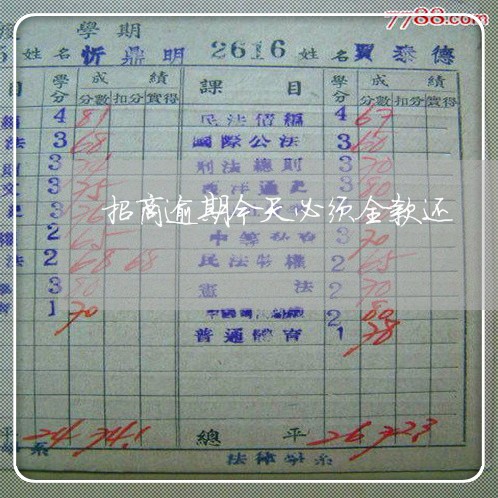 7788.com
學期
姓名 忻鼎明 2616 姓名 賈泰德
目 學分 成績 課目 學分 成績
分數 扣分 實得 分數 扣分 實得
4 81 民法債編 4 67
法 3 68 國際公法 3 60
3 刑法總則 3 70
3 75 西洋通史 3 80
招商逾期今天必须全款还
2 65 3 70
法 2 68 68 民法物權 2 65
3 80 憲法 2 70
1 70 2 80
普通體育 1 78
平 24 74.1 總平 26 72.3
系 法律學系